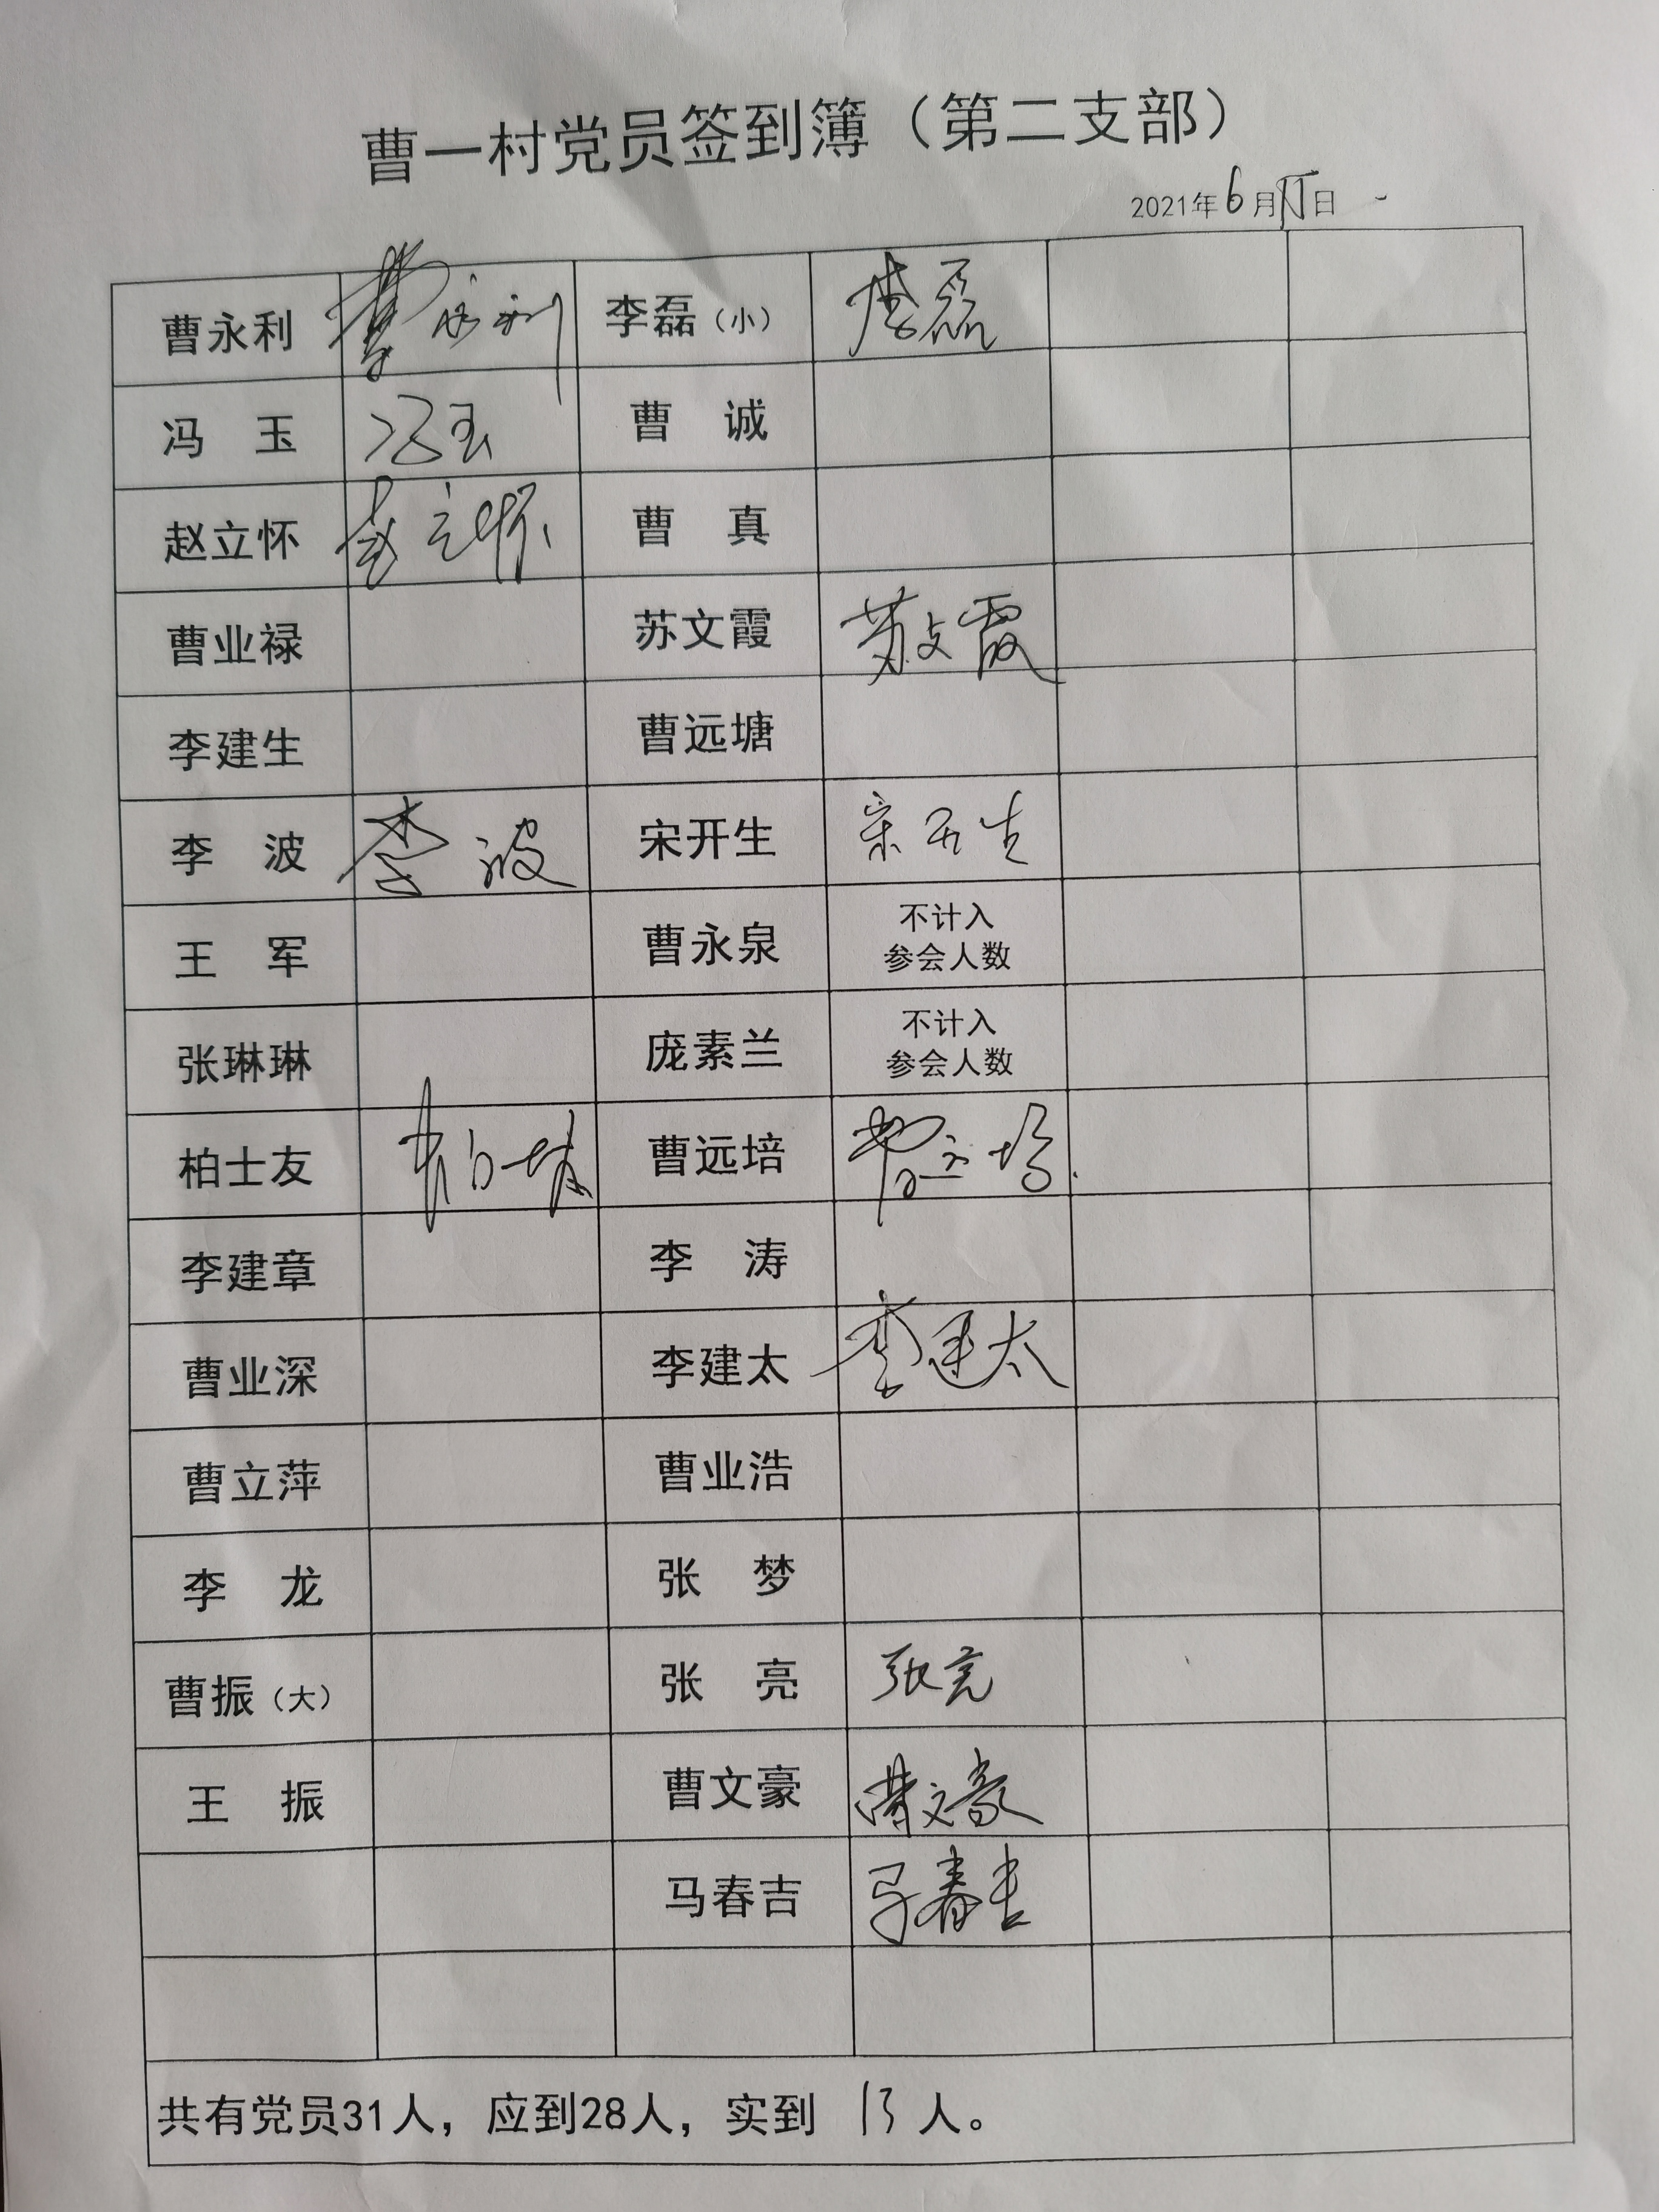 曹一村党员签到簿（第二支部）
2021年6月15日
曹永利 曹永利 李磊（小） 李磊
冯 玉 冯玉 曹 诚
赵立怀 赵立怀 曹 真
曹业禄 苏文霞 苏文霞
李建生 曹远塘
李 波 李波 宋开生 宋开生
王 军 曹永泉 不计入
参会人数
张琳琳 庞素兰 不计入
参会人数
柏士友 柏士友 曹远培 曹远培
李建章 李 涛
曹业深 李建太 李建太
曹立萍 曹业浩
李 龙 张 梦
曹振（大） 张 亮 张亮
王 振 曹文豪 曹文豪
马春吉 马春吉
共有党员31人，应到28人，实到 13 人。